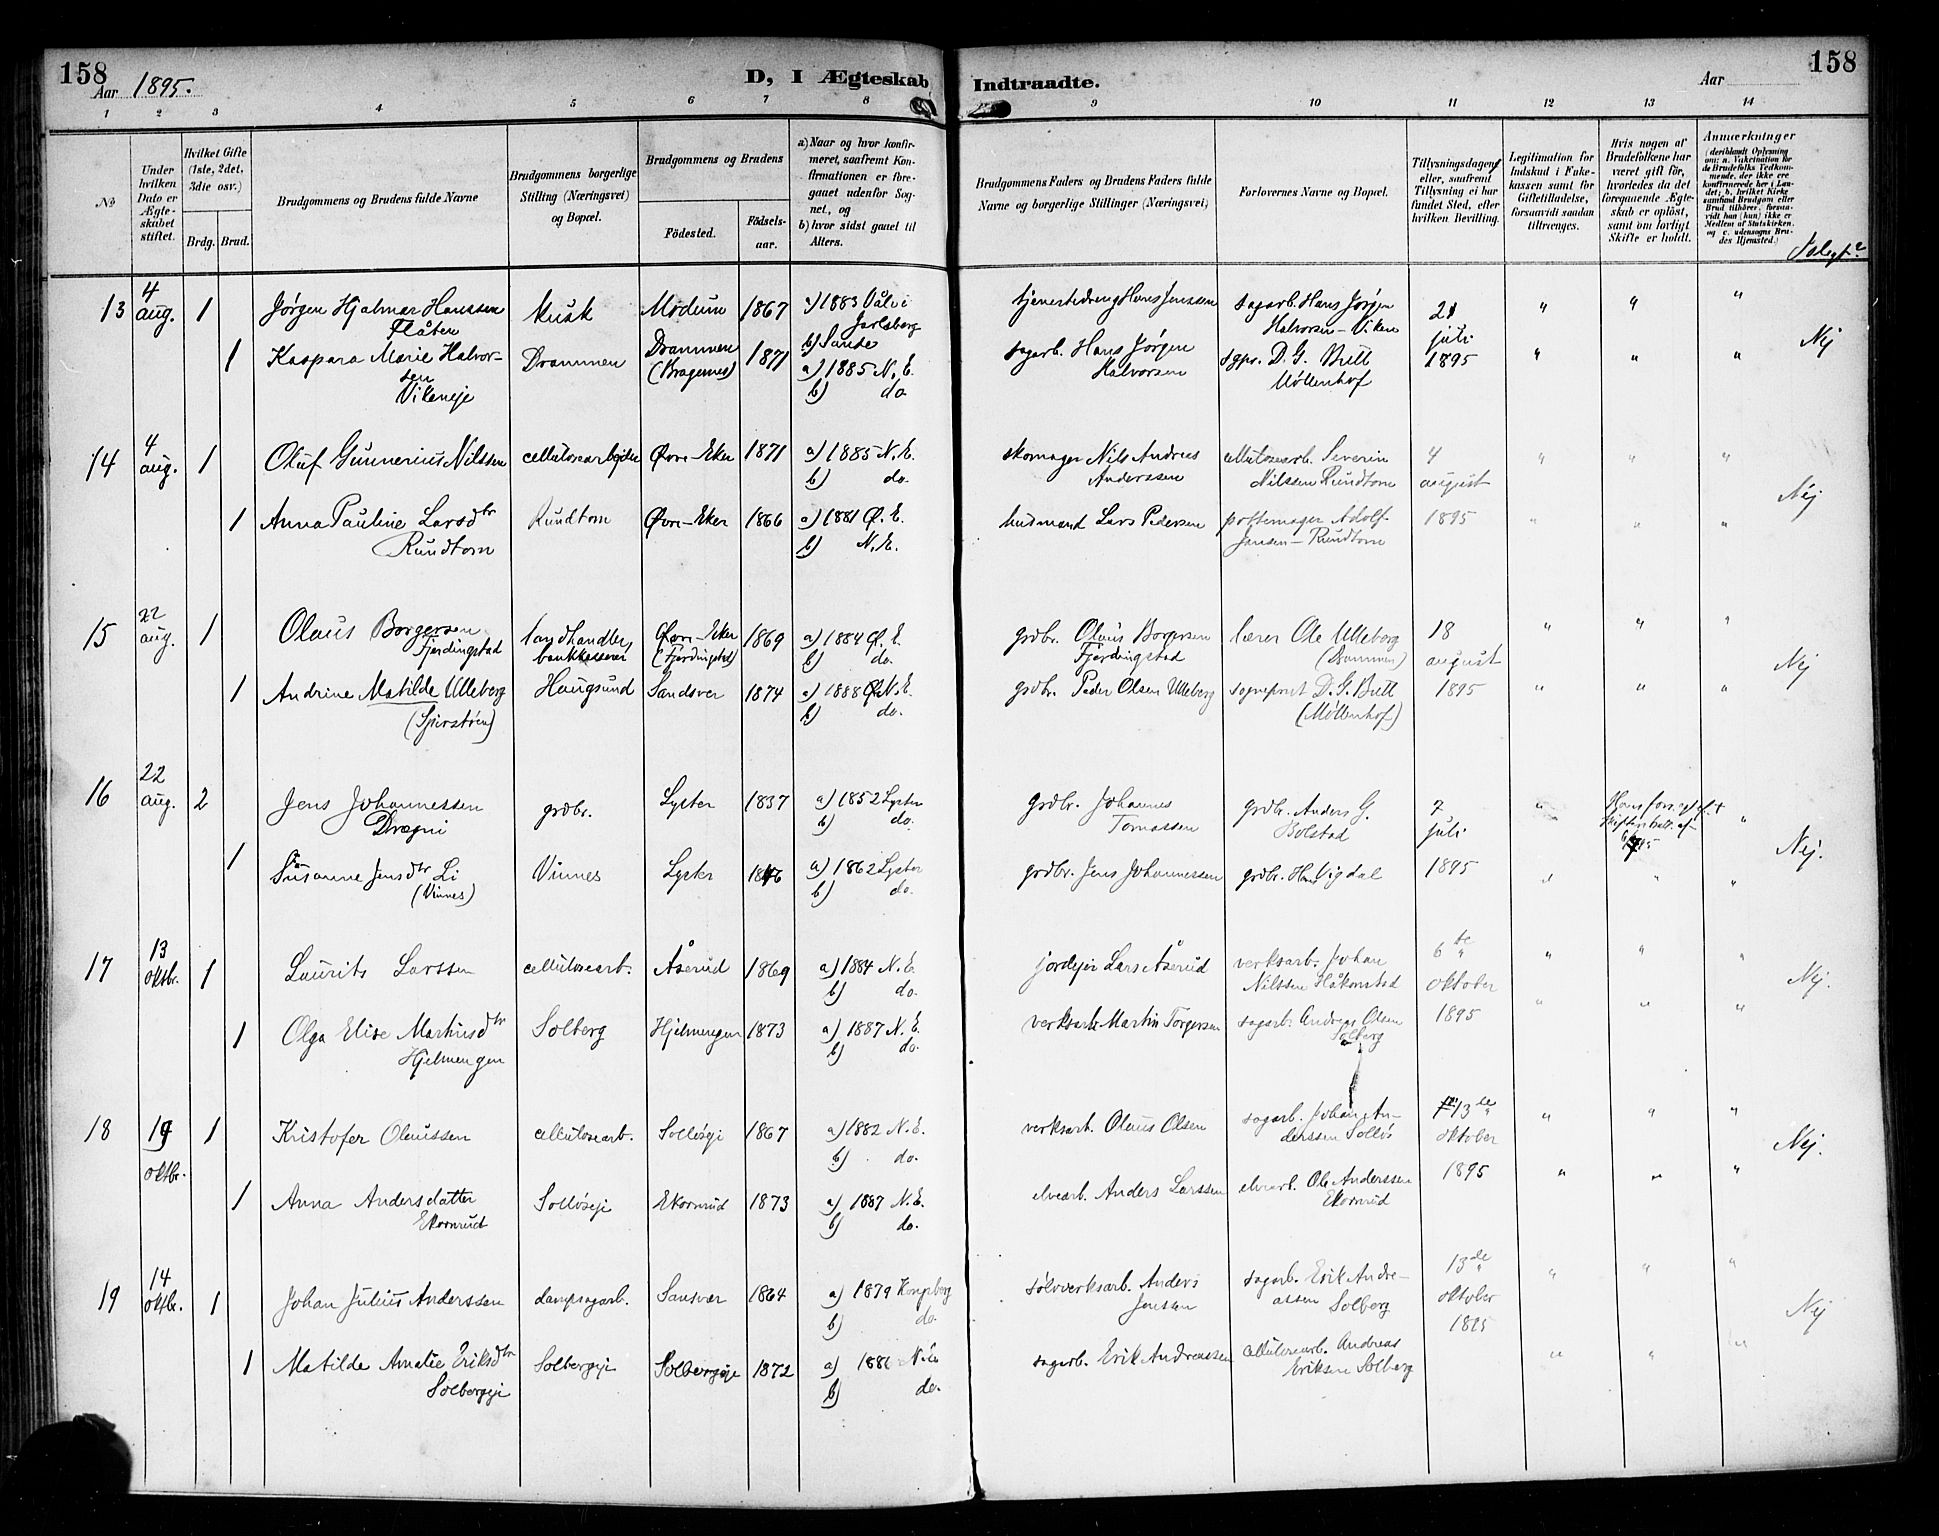 158
Aar 1895.
D, I Ægteskab Indtraadte.
Aar
158
1 2 3 4 5 6 7 8 9 10 11 12 13 14
No
Under hvilken Dato er Ægteskabet stiftet.
Hvilket Gifte (1ste, 2det, 3die osv.)
Brdg. Brud.
Brudgommens og Brudens fulde Navne
Brudgommens borgerlige Stilling (Næringsvei) og Bopæl.
Brudgommens og Brudens
Födested.
Födselsaar.
a) Naar og hvor konfirmeret, saafremt Konfirmationen er foregaaet udenfor Sognet, og
b) hvor sidst gaaet til Alters.
Brudgommens Faders og Brudens Faders fulde Navne og borgerlige Stillinger (Næringsvei)
Forlovernes Navne og Bopæl.
Tillysningsdagene eller, saafremt Tillysning ei har fundet Sted, efter hvilken Bevilling.
Legitimation for Indskud i Enkekassen samt for Giftetilladelse, forsaavidt saadan tiltrænges.
Hvis nogen af Brudefolkene har været gift för, hvorledes da det foregaaende Ægteskab er oplöst, samt om lovligt Skifte er holdt.
Anmærkninger (deriblandt Oplysning om: a. Vakcination for de Brudefolks Vedkommende, der ikke ere konfirmerede her i Landet; b. hvilket Kirkesamfund Brudgom eller Brud tilhörer, forsaavidt han (hun) ikke er Medlem af Statskirken, og c. udensogns Brudes Hjemsted.)
13 4 aug. 1 Jørgen Hjalmar Hanssen Flåten Musk Modum 1867 a) 1883 Våle i Jarlsberg b) Sande tjenestedreng Hans Jenssen sagarb. Hans Jørgen Halvorsen – Viken 21 juli 1895 " " "
1 Kaspara Marie Halvorsen Vikeneje Drammen Drammen (Bragernes) 1871 a) 1885 N. E. b) do. sagarb. Hans Jørgen Halvorsen sgpr. D. G. Bull Møllenhof " " " Nej
14 4 aug. 1 Oluf Gunnerius Nilssen cellulosearbejder Øvre-Eker 1871 a) 1885 N. E. b) do. skomager Nils Andreas Anderssen cellulosearb. Severin Nilssen Rundtom 4 august 1895 " " "
1 Anna Pauline Larsdtr Rundtom Rundtom Øvre-Eker 1866 a) 1881 Ø. E. b) N. E. husmand Lars Pedersen pottemager Adolf Jansen – Rundtom " " " Nej
15 22 aug. 1 Olaus Borgersen Fjerdingstad landhandler, bankkasserer Øvre-Eker (Fjerdingstad) 1869 a) 1884 Ø. E. b) do. grdbr. Olaus Borgersen Fjerdingstad lærer Ole Ulleberg (Drammen) 18 august 1895 " " "
1 Andrine Matilde Ulleberg Haugsund Sandsver 1874 a) 1888 N. E. b) do. grdbr. Peder Olsen Ulleberg sogneprest D. G. Bull (Møllenhof) " " " Nej
16 22 aug. 2 Jens Johannessen Drægni grdbr. Lyster 1837 a) 1852 Lyster b) do. grdbr. Johannes Tomassen grdbr. Anders G. Bolstad 7 juli 1895 " "
1 Susanne Jensdtr Li (Vinnes) Vinnes Lyster 1846 a) 1862 Lyster b) do. grdbr. Jens Johannessen grdbr. Vigdal " " " Nej.
17 13 oktbr. 1 Laurits Larssen cellulosearb. Åserud 1869 a) 1884 N. E. b) do. jordejer Lars Åserud verksarb. Johan Nilssen Håkonstad 6te oktober 1895 " " "
1 Olga Elise Martinsdtr Hjelmengen Solberg Hjelmengen 1873 a) 1887 N. E. b) do. verksarb. Martin Torgersen sagarb. Andreas Olsen Solberg " " " Nej.
18 19 oktbr. 1 Kristofer Olaussen cellulosearb. Solløseje 1867 a) 1882 N. E. b) do. verksarb. Olaus Olsen sagarb. Johan Anderssen Solløs 13de oktober 1895 " " "
1 Anna Andersdatter Ekornrud Solløseje Ekornrud 1873 a) 1887 N. E. b) do. elvearb. Anders Larssen elvearb. Ole Anderssen Ekornrud " " " Nej.
19 14 oktbr. 1 Johan Julius Anderssen dampsagarb. Sansvær 1864 a) 1879 Kongsberg b) do. sølvverksarb. Anders Jenssen sagarb. Erik Andreassen Solberg 13de oktober 1895 " " "
1 Matilde Amalie Eriksdtr Solbergeje Solbergeje Solbergeje 1872 a) 1886 N. E. b) do. sagarb. Erik Andreassen cellulosearb. Andreas Eriksen Solberg " " " Nej